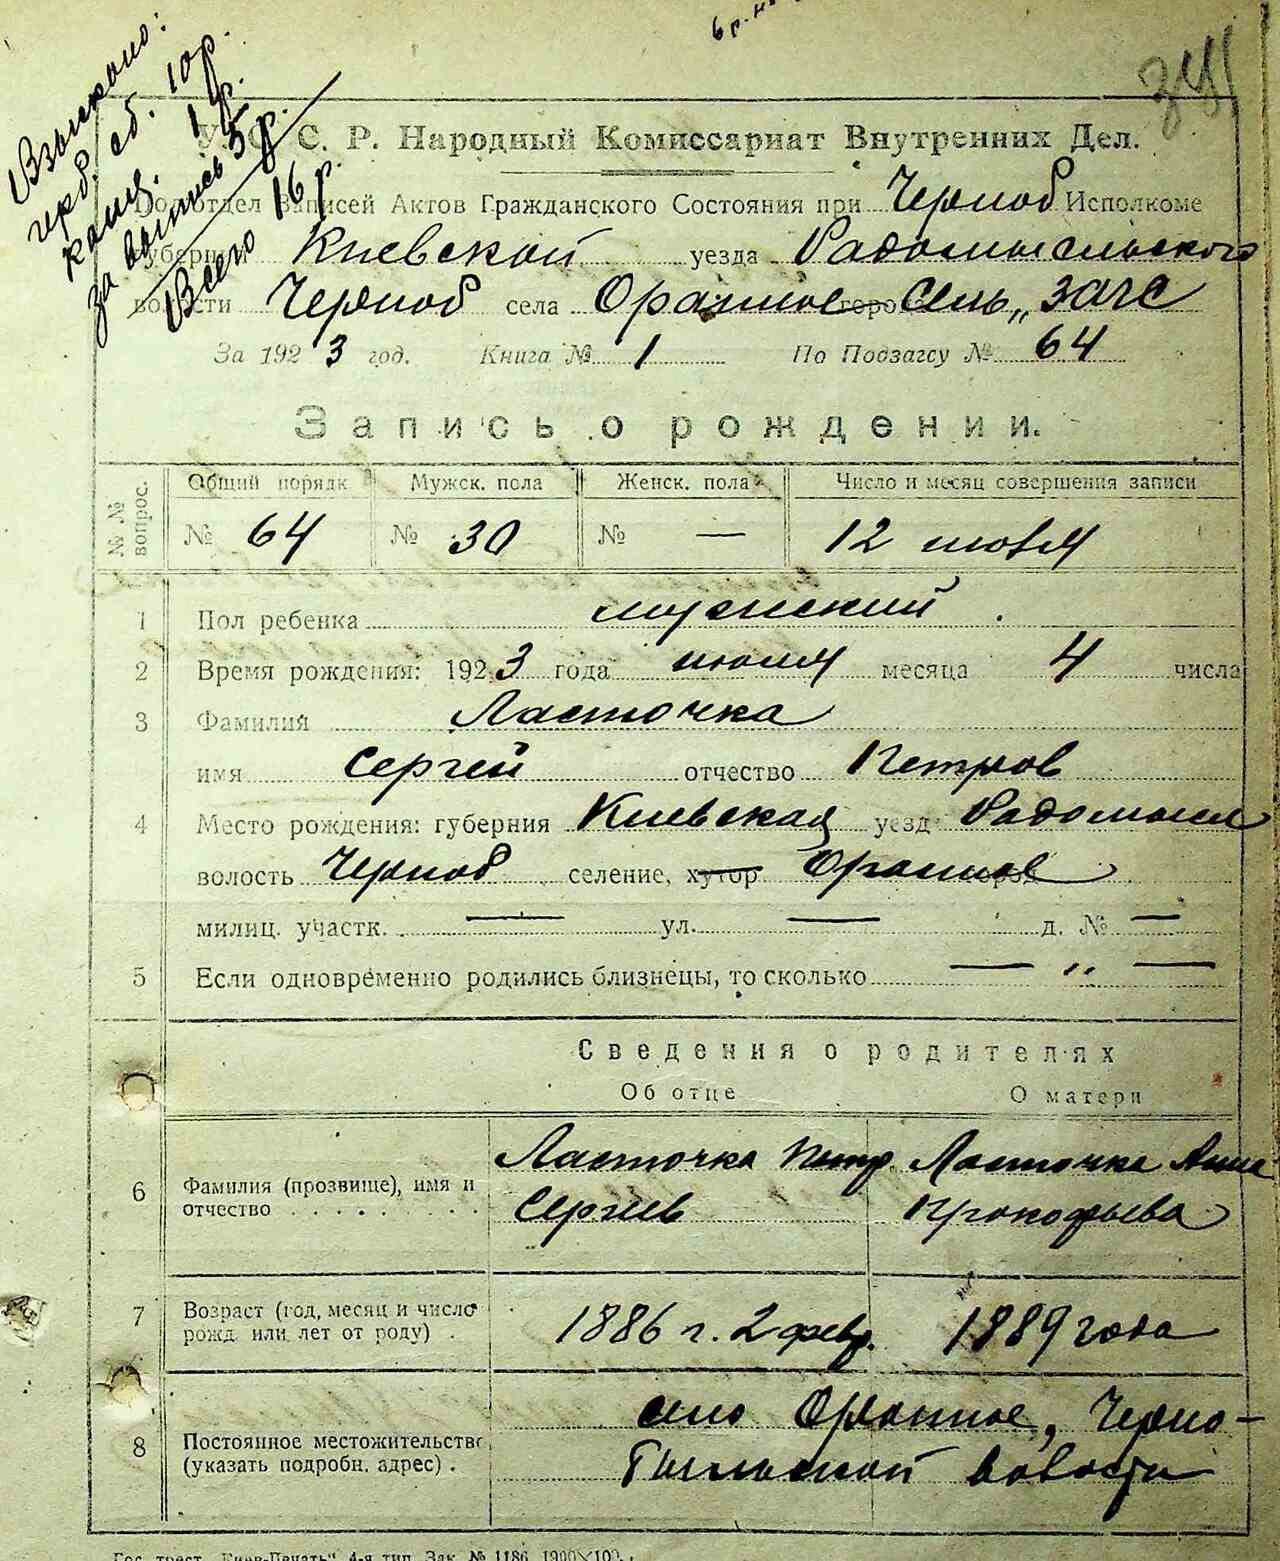 Взыскано:
герб. сб. 10р.
канц. 1р.
за выпись 5р.
Всего 16р.
6 р.
У. С. С. Р. Народный Комиссариат Внутренних Дел.
Подотдел Записей Актов Гражданского Состояния при Черноб Исполкоме
губернии Киевской уезда Радомысльского
волости Черноб села Оранное города Сель„ ЗАГС
За 1923 год. Книга № 1 По Подзагсу № 64
Запись о рождении.
№ № вопрос. Общий порядк Мужск. пола Женск. пола Число и месяц совершения записи
№ 64 № 30 № — 12 июля
1 Пол ребенка мужский
2 Время рождения: 1923 года июля месяца 4 числа
3 Фамилий Ласточка
имя Сергей отчество Петров
4 Место рождения: губерния Киевская уезд Радомысл
волость Черноб селение, хутор Оранное
милиц. участк. — ул. — д. № —
5 Если одновременно родились близнецы, то сколько — „ —
Сведения о родителях
Об отце О матери
6 Фамилия (прозвище), имя и отчество Ласточка Петр. Ласточка Анна
Сергиев Прокофьева
7 Возраст (год, месяц и число рожд. или лет от роду) . 1886 г. 2 февр. 1889 года
8 Постоянное местожительство (указать подробн. адрес) . село Оранное, Черно-
быльской волости
Гос. трест „Киев-Печать“ 4-я тип. Зак. № 1186